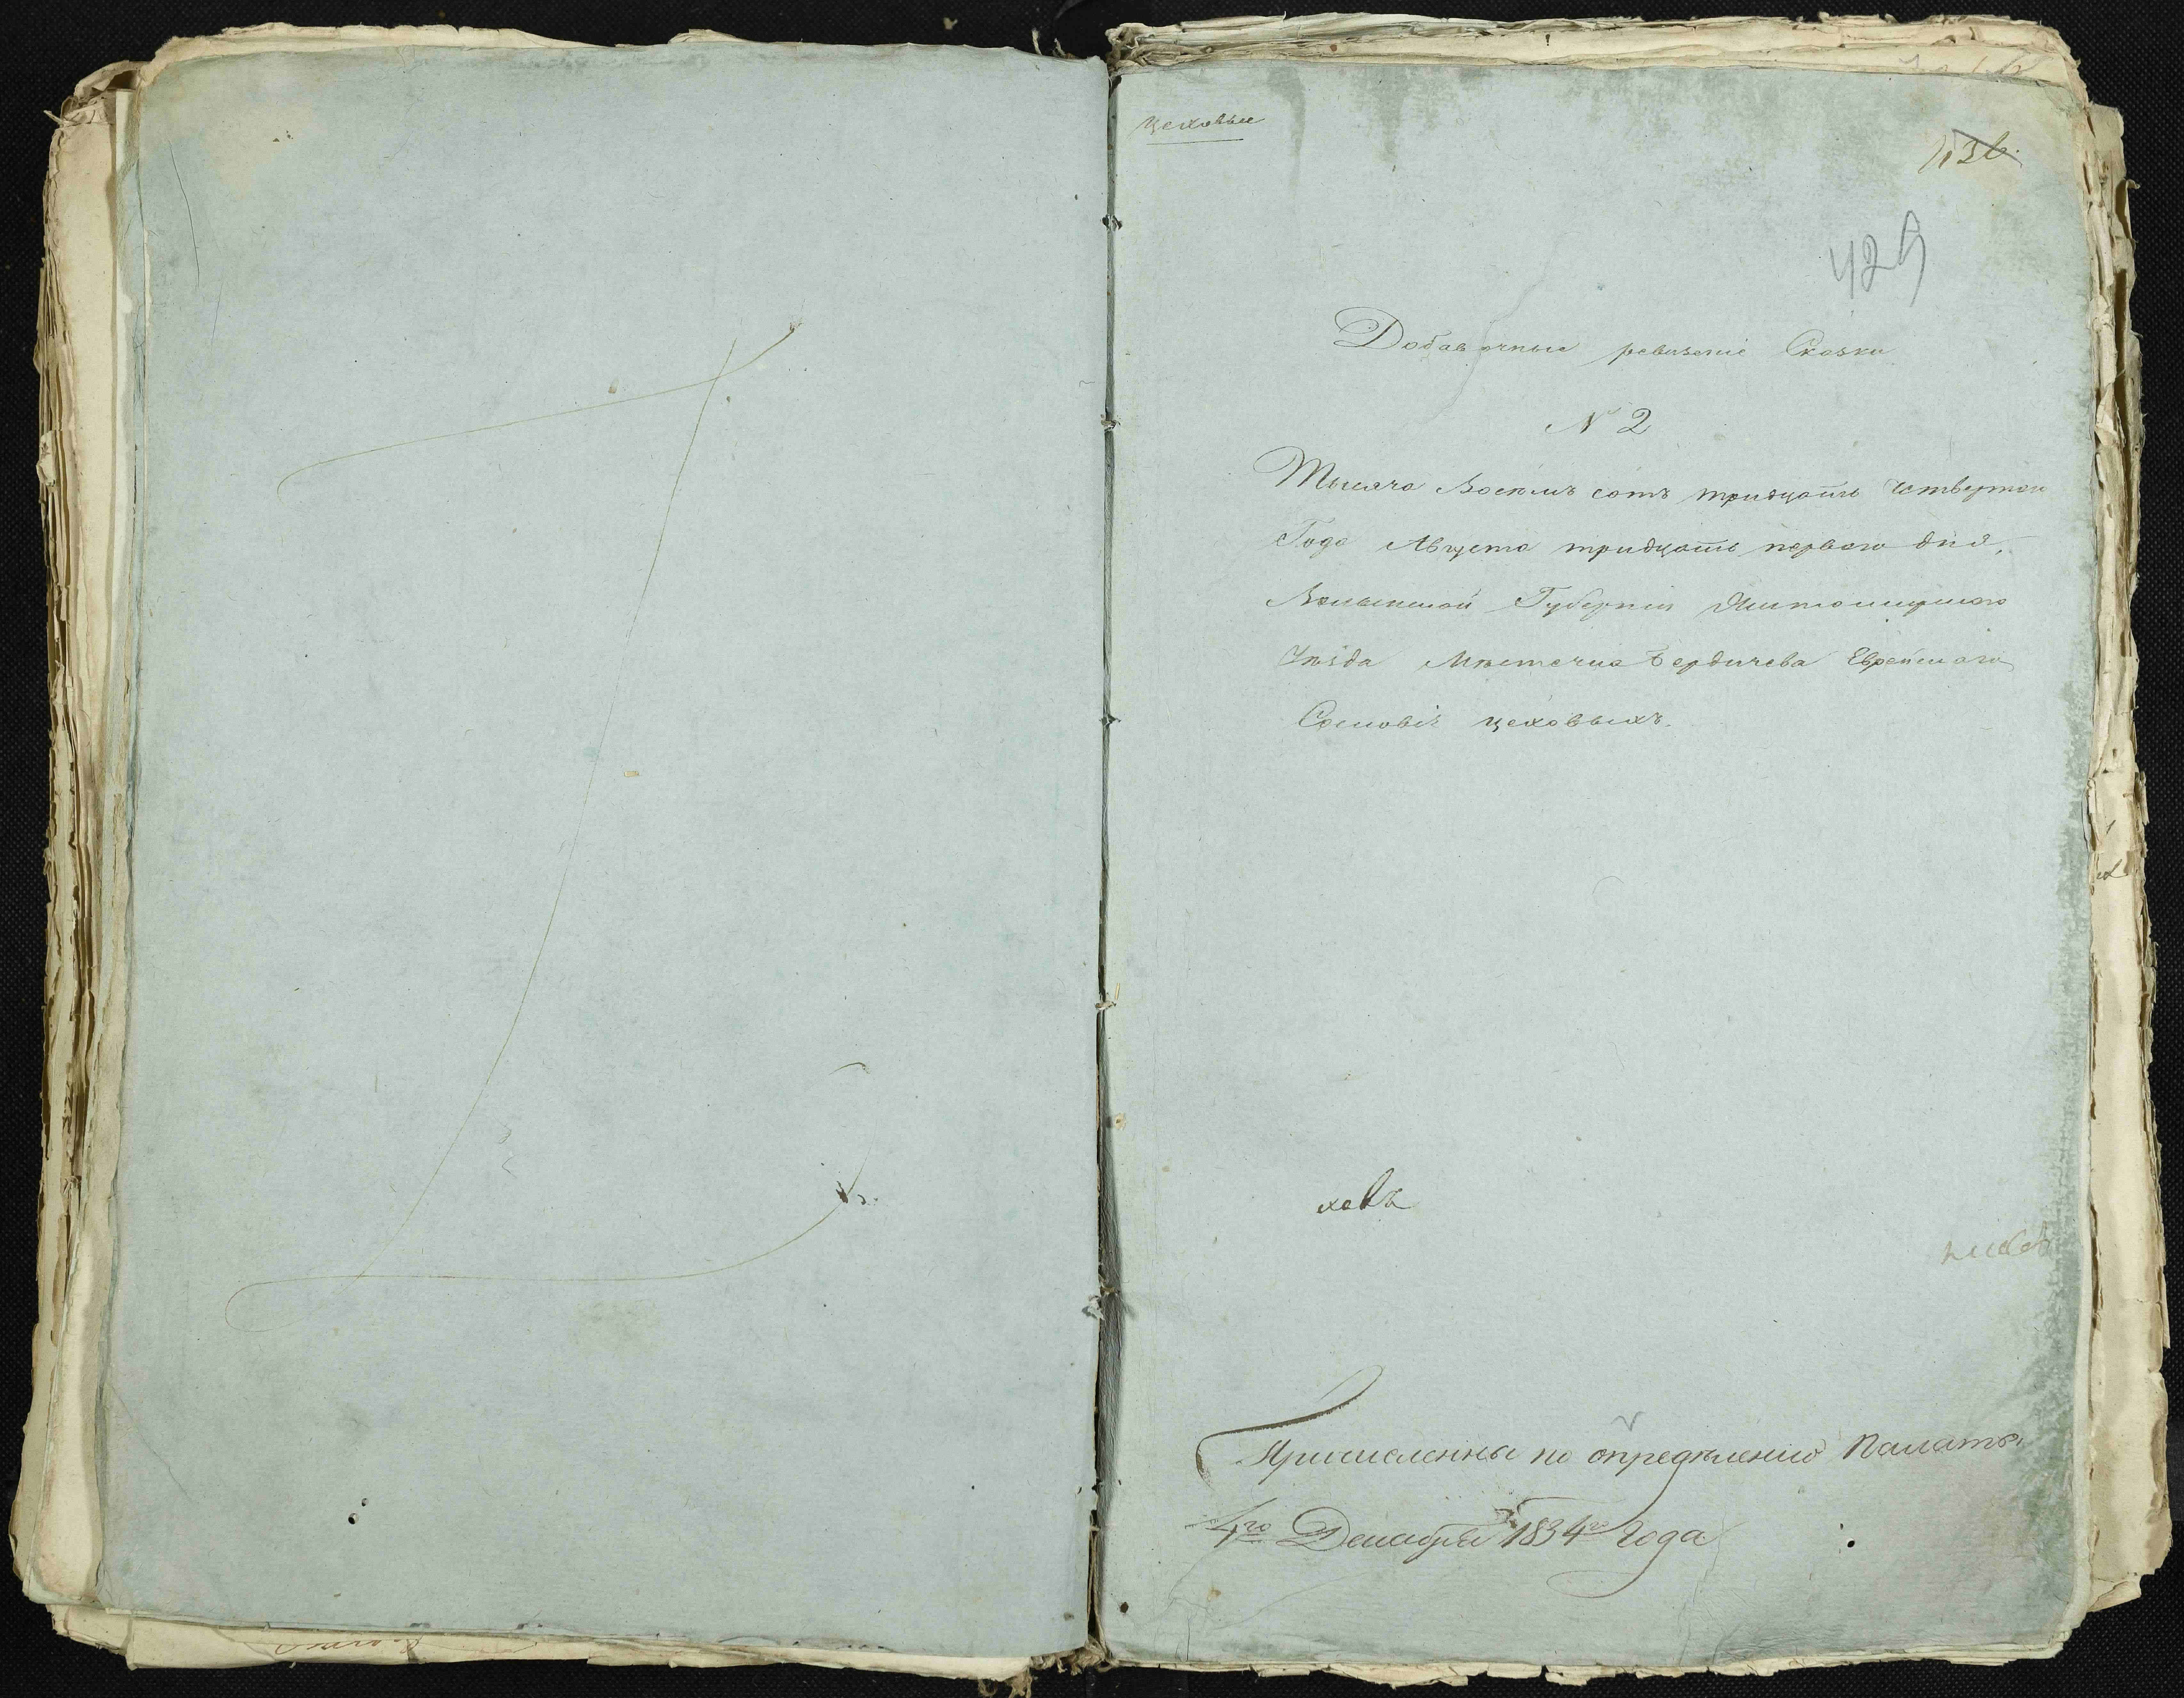 Цеховые
136.
429
Добавочные ревизскіе Сказки
N 2
Тысяча Восемь сотъ тридцать четвертаго
Года Августа тридцать перваго дня,
Волынской Губерніи Житомирскаго
Уѣзда Мѣстечка Бердичева Еврейскаго
Сословія цеховыхъ.
ховъ
Причисленны по опредѣленію Палаты
4го Декабря 1834го Года